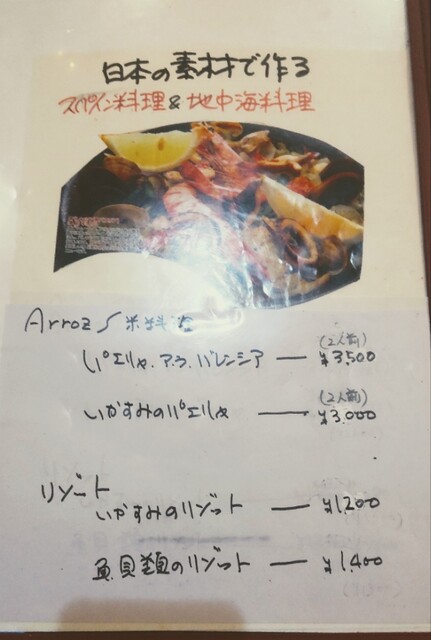 日本の素材で作る
スペイン料理&地中海料理
Arroz / 米料理
パエリャ・ア・ラ・バレンシア — (2人前) ¥3,500
いかすみのパエリャ — (2人前) ¥3,000
リゾット
いかすみのリゾット — ¥1,200
魚貝類のリゾット — ¥1,400